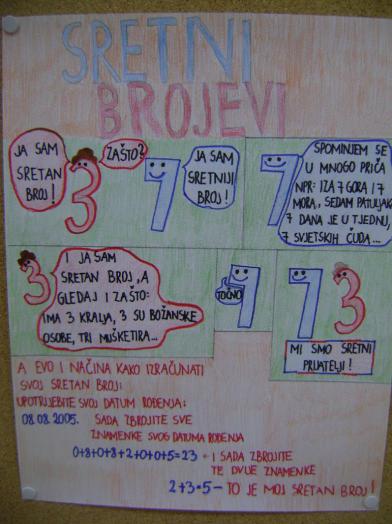 SRETNI
BROJEVI
JA SAM
SRETAN
BROJ!
ZAŠTO?
JA SAM
SRETNIJI
BROJ!
SPOMINJEM SE
U MNOGO PRIČA
NPR: IZA 7 GORA I 7
MORA, SEDAM PATULJAK
7 DANA JE U TJEDNU,
7 SVJETSKIH ČUDA...
I JA SAM
SRETAN BROJ, A
GLEDAJ I ZAŠTO:
IMA 3 KRALJA, 3 SU BOŽANSKE
OSOBE, TRI MUŠKETIRA...
TOČNO
MI SMO SRETNI
PRIJATELJI!
A EVO I NAČINA KAKO IZRAČUNATI
SVOJ SRETAN BROJ:
UPOTRIJEBITE SVOJ DATUM ROĐENJA:
08.08.2005. SADA ZBROJITE SVE
ZNAMENKE SVOG DATUMA ROĐENJA
0+8+0+8+2+0+0+5=23 - I SADA ZBROJITE
TE DVIJE ZNAMENKE
2+3=5 - TO JE MOJ SRETAN BROJ!